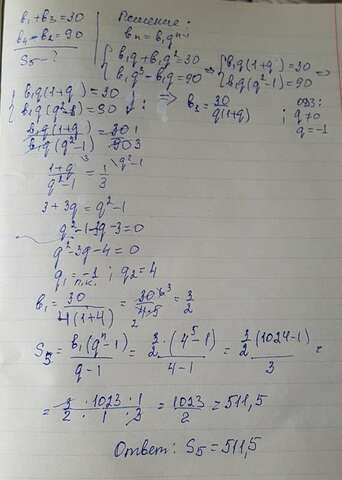 b₁+b₃=30 Решение:
b₄-b₂=90 bₙ=b₁qⁿ⁻¹
S₅-?
{b₁q+b₁q²=30 ⇒ {b₁q(1+q)=30 ⇒
{b₁q³-b₁q=90 {b₁q(q²-1)=90
{b₁q(1+q)=30 ⇒ b₁=30/q(1+q) ; ОДЗ:
{b₁q(q²-1)=90 ↓: q≠0
q=-1
b₁q(1+q)/b₁q(q²-1)=30 1/90 3
1+q/q²-1=1/3
3+3q=q²-1
q²-1-3q-3=0
q²-3q-4=0
q₁=-1 п.к. ; q₂=4
b₁=30/4(1+4)=30/4·5=3/2
S₅=b₁(qⁿ-1)/q-1=3/2·(4⁵-1)/4-1=3/2(1024-1)/3=
=3·1023·1/2·1·3=1023/2=511,5
Ответ: S₅=511,5